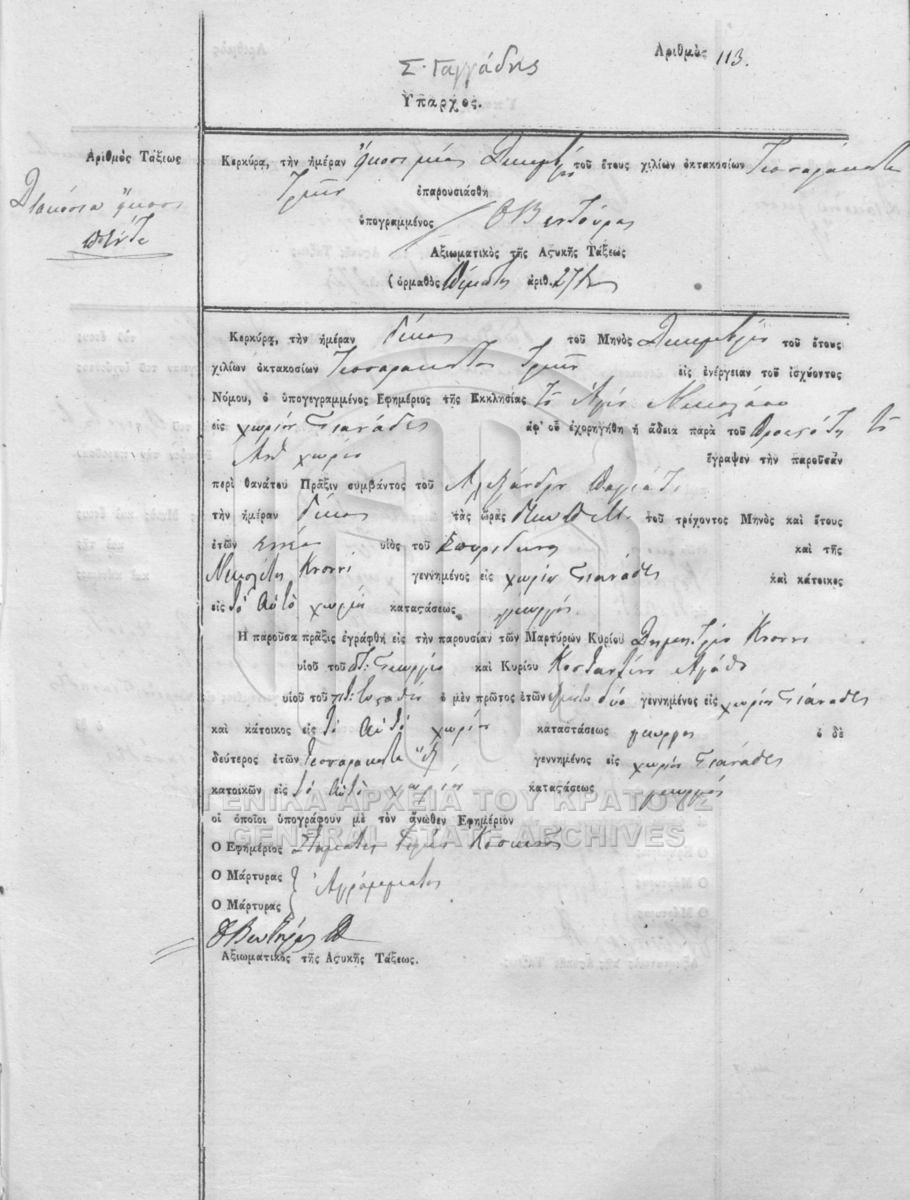 Σ. Γαγγάδης
Αριθμὸς 113.
Ὑπαρχος.
Αριθμὸς Τάξεως
Διακόσια ἤκοσι
πέντε
Κερκύρᾳ, τὴν ἡμέραν ἤκοσι μίαν Δικεμβ. τοῦ ἔτους χιλίων ὀκτακοσίων Τεσσαράκοντα
Τρίτης ἐπαρουσιάσθη
ὑπογραμμένος Βεντούρας
Ἀξιωματικὸς τῆς Αςυκῆς Τάξεως
(ὁρμαθὸς ἀριθ.
Κερκύρᾳ, τὴν ἡμέραν δέκα τοῦ Μηνὸς Δικεμβρίου τοῦ ἔτους
χιλίων ὀκτακοσίων Τεσσαράκοντα Τρίτης εἰς ἐνέργειαν τοῦ ἰσχύοντος
Νόμου, ὁ ὑπογεγραμμένος Ἐφημέριος τῆς Εκκλησίας τοῦ Ἁγίου Νικολάου
εἰς χωρίον Γιανάδες ἀφ' οὗ ἐχορηγήθη ἡ ἄδεια παρὰ τοῦ Προεστότη τοῦ
χωρίου ἔγραψεν τὴν παροῦσαν
περὶ θανάτου Πρᾶξιν συμβάντος τοῦ Αλεξάνδρου
τὴν ἡμέραν δέκα τὰς ὥρας τοῦ τρίχοντος Μηνὸς καὶ ἔτους
ἐτῶν ἐννέα υἱὸς τοῦ Σπυρίδωνος καὶ τῆς
Νικολέτας Κνονή γεννημένος εἰς χωρίον Γιανάδες καὶ κάτοικος
εἰς τὸ αὐτὸ χωρίον καταςάσεως γεωργός.
Ἡ παροῦσα πρᾶξις ἐγράφθη εἰς τὴν παρουσίαν τῶν Μαρτύρων Κυρίου Δημητρίου Κνονή
υἱοῦ τοῦ ποτ: Γεωργίου καὶ Κυρίου Κοσταντίνου Αγάθου
υἱοῦ τοῦ ποτ: ὁ μὲν πρῶτος ἐτῶν δύο γεννημένος εἰς χωρίον Γιανάδες
καὶ κάτοικος εἰς τὸ αὐτὸ χωρίον καταστάσεως γεωργος ὁ δὲ
δεύτερος ἐτῶν τεσσαράκοντα ἕξ γεννημένος εἰς χωρίον Γιανάδες
κατοικῶν εἰς τὸ αὐτὸ χωρίον καταςάσεως γεωργός
οἱ ὁποῖοι ὑπογράφουν μὲ τὸν ἄνωθεν Ἐφημέριον
Ὁ Ἐφημέριος Σταμάτης Ἱερεύς
Ὁ Μάρτυρας
Ἀγράμματος
Ὁ Μάρτυρας
Βεντούρας
Ἀξιωματικὸς τῆς Αςυκῆς Τάξεως.
ΓΕΝΙΚΑ ΑΡΧΕΙΑ ΤΟΥ ΚΡΑΤΟΥΣ
GENERAL STATE ARCHIVES